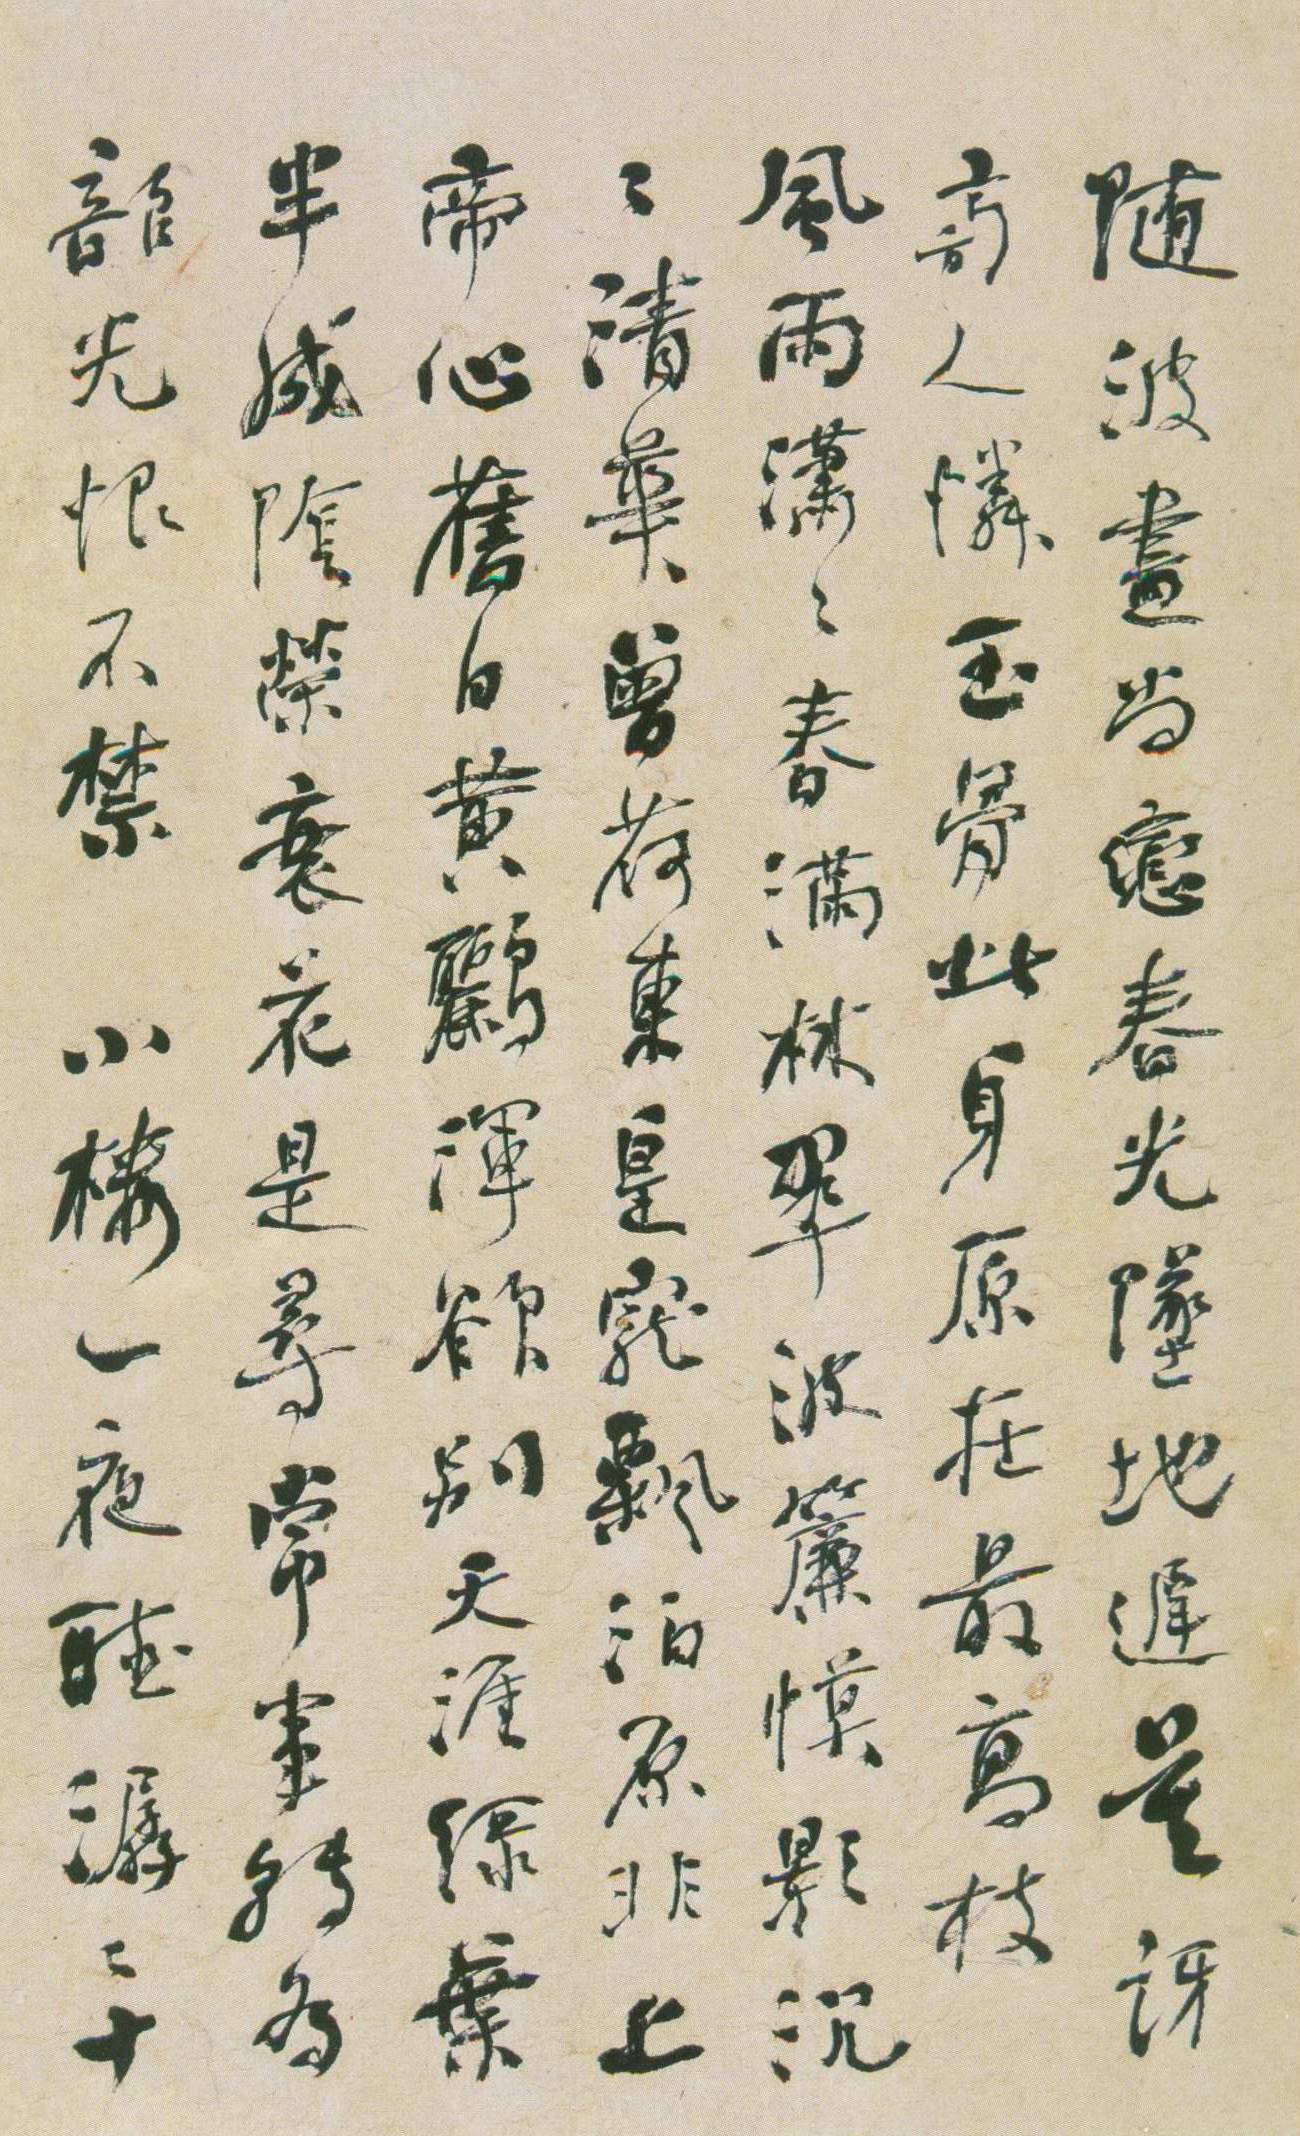 随波盡尚戀春光墜地遲莫訝
旁人憐玉骨此身原在最高枝
風雨瀟〻春滿林翠波簾幙影沉
〻清華曾荷東皇寵飄泊原非上
帝心舊日黄鸝渾欲別天涯綠葉
半成陰榮衰花是尋常事轉為
韶光恨不禁　小樓一夜聽潺〻十